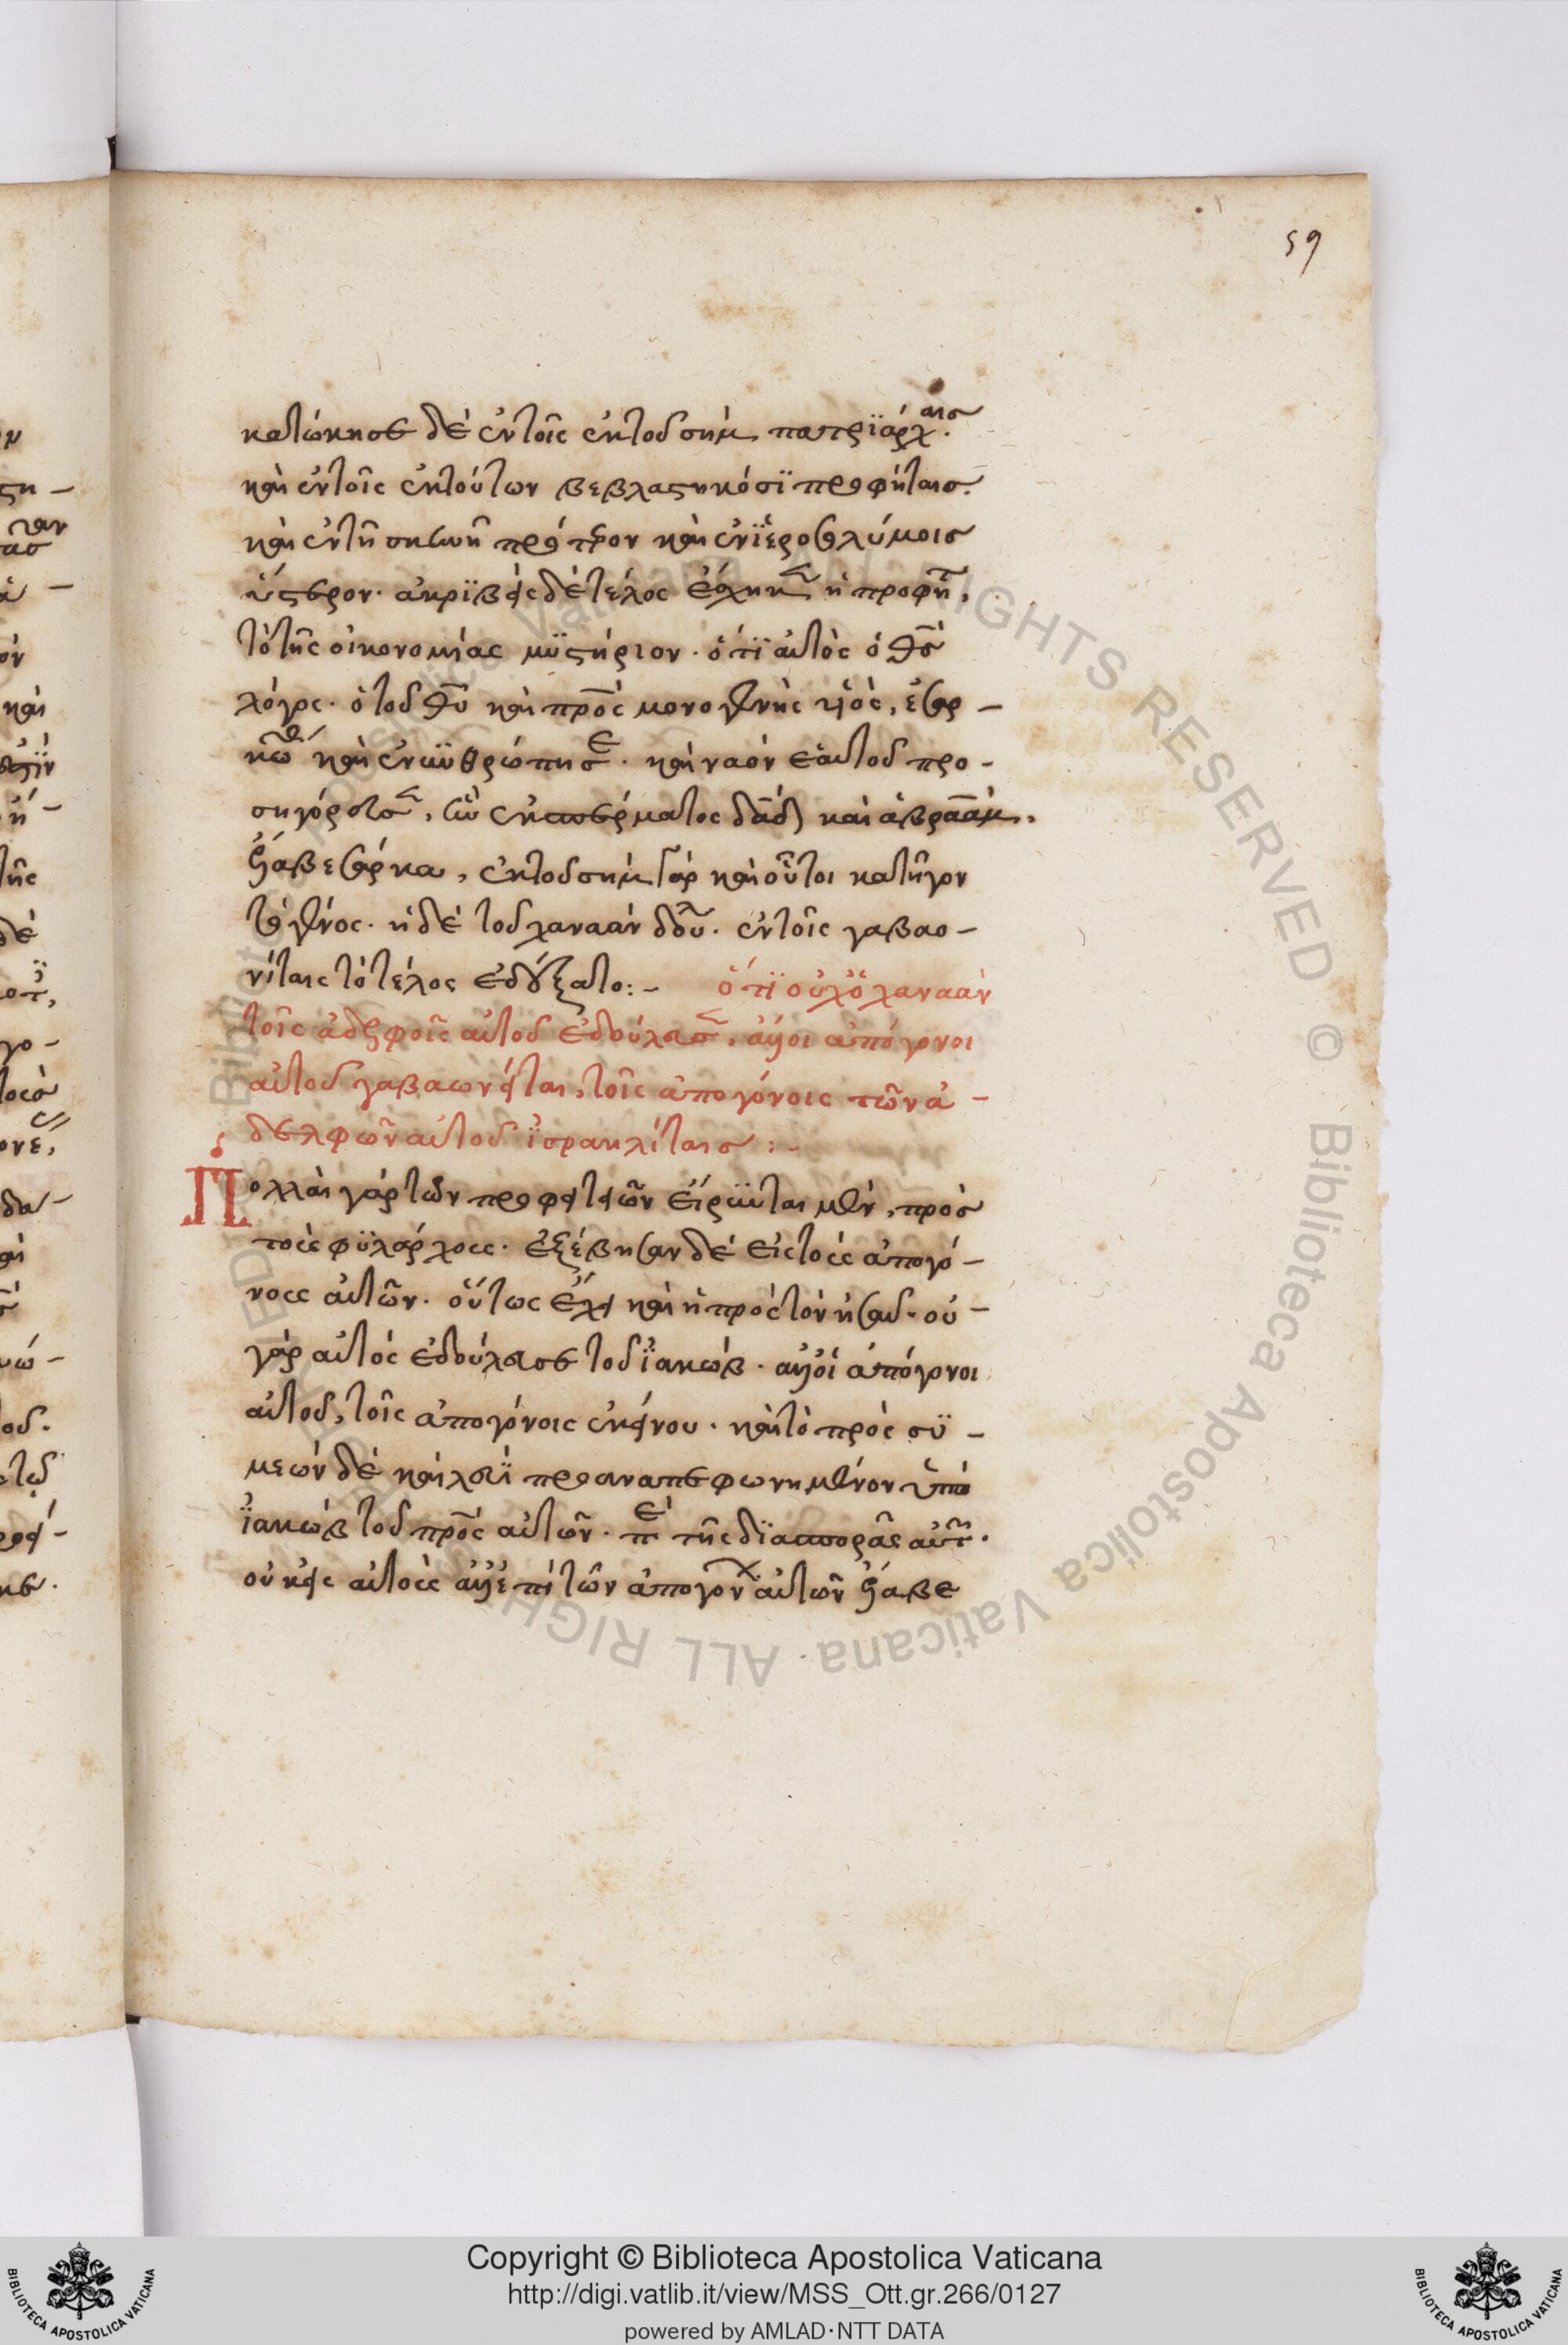 59
κατώκησε δὲ ἐν τοῖς ἐκ τοῦ σὴμ πατριάρχαις.
καὶ ἐν τοῖς ἐκ τούτων βεβλαστηκόσι προφήταις.
καὶ ἐν τῆ σκηνῆ πρότερον καὶ ἐν ἱεροσολύμοις
ὕστερον. ἀκριβὲς δὲ τέλος ἔσχηκεν ἡ προφητ,
τὸ τῆς οἰκονομίας μυστήριον. ὅτι αὐτὸς ὁ θς
λόγος. ὁ τοῦ θυ καὶ πρς μονογενὴς υἱὸς, ἐσαρ-
κώθ καὶ ἐνηνθρώπησε. καὶ ναὸν ἑαυτοῦ προ-
σηγόρευσεν, τὴν ἐκ σπέρματος δαδ καὶ ἀβραὰμ.
σάρκα, ἐκ τοῦ σὴμ γὰρ καὶ οὗτοι κατῆγον
τὸ γένος. ἡ δὲ τοῦ χαναὰν δουλ. ἐν τοῖς γαβαο-
νίταις τὸ τέλος ἐδέξατο:- ὅτι οὐχ ὁ χαναὰν
τοῖς ἀδελφοῖς αὐτοῦ ἐδούλευσεν, ἀλλ' οἱ ἀπόγονοι
αὐτοῦ γαβαωνεῖται, τοῖς ἀπογόνοις τῶν ἀ-
δελφῶν αὐτοῦ ἰσραηλίταις:-
Πολλαὶ γὰρ τῶν προφητειῶν εἴρηνται μὲν, πρὸς
τοὺς φυλάρχους. ἐξέβησαν δὲ εἰς τοὺς ἀπογό-
νους αὐτῶν. οὕτως ἔχει καὶ ἡ πρὸς τὸν ἠσαῦ. οὐ-
γὰρ αὐτὸς ἐδούλευσε τοῦ ἰακώβ. ἀλλ' οἱ ἀπόγονοι
αὐτοῦ, τοῖς ἀπογόνοις ἐκείνου. καὶ τὸ πρὸς συ-
μεὼν δὲ καὶ λευὶ προαναπεφωνημένον ὑπὸ
ἰακὼβ τοῦ πρς αὐτῶν. πε τῆς διασπορᾶς αὐτ.
οὐκ εἰς αὐτοὺς ἀλλ' ἐπὶ τῶν ἀπογόν αὐτῶν
Copyright © Biblioteca Apostolica Vaticana
http://digi.vatlib.it/view/MSS_Ott.gr.266/0127
powered by AMLAD·NTT DATA
BIBLIOTECA APOSTOLICA VATICANA
BIBLIOTECA APOSTOLICA VATICANA